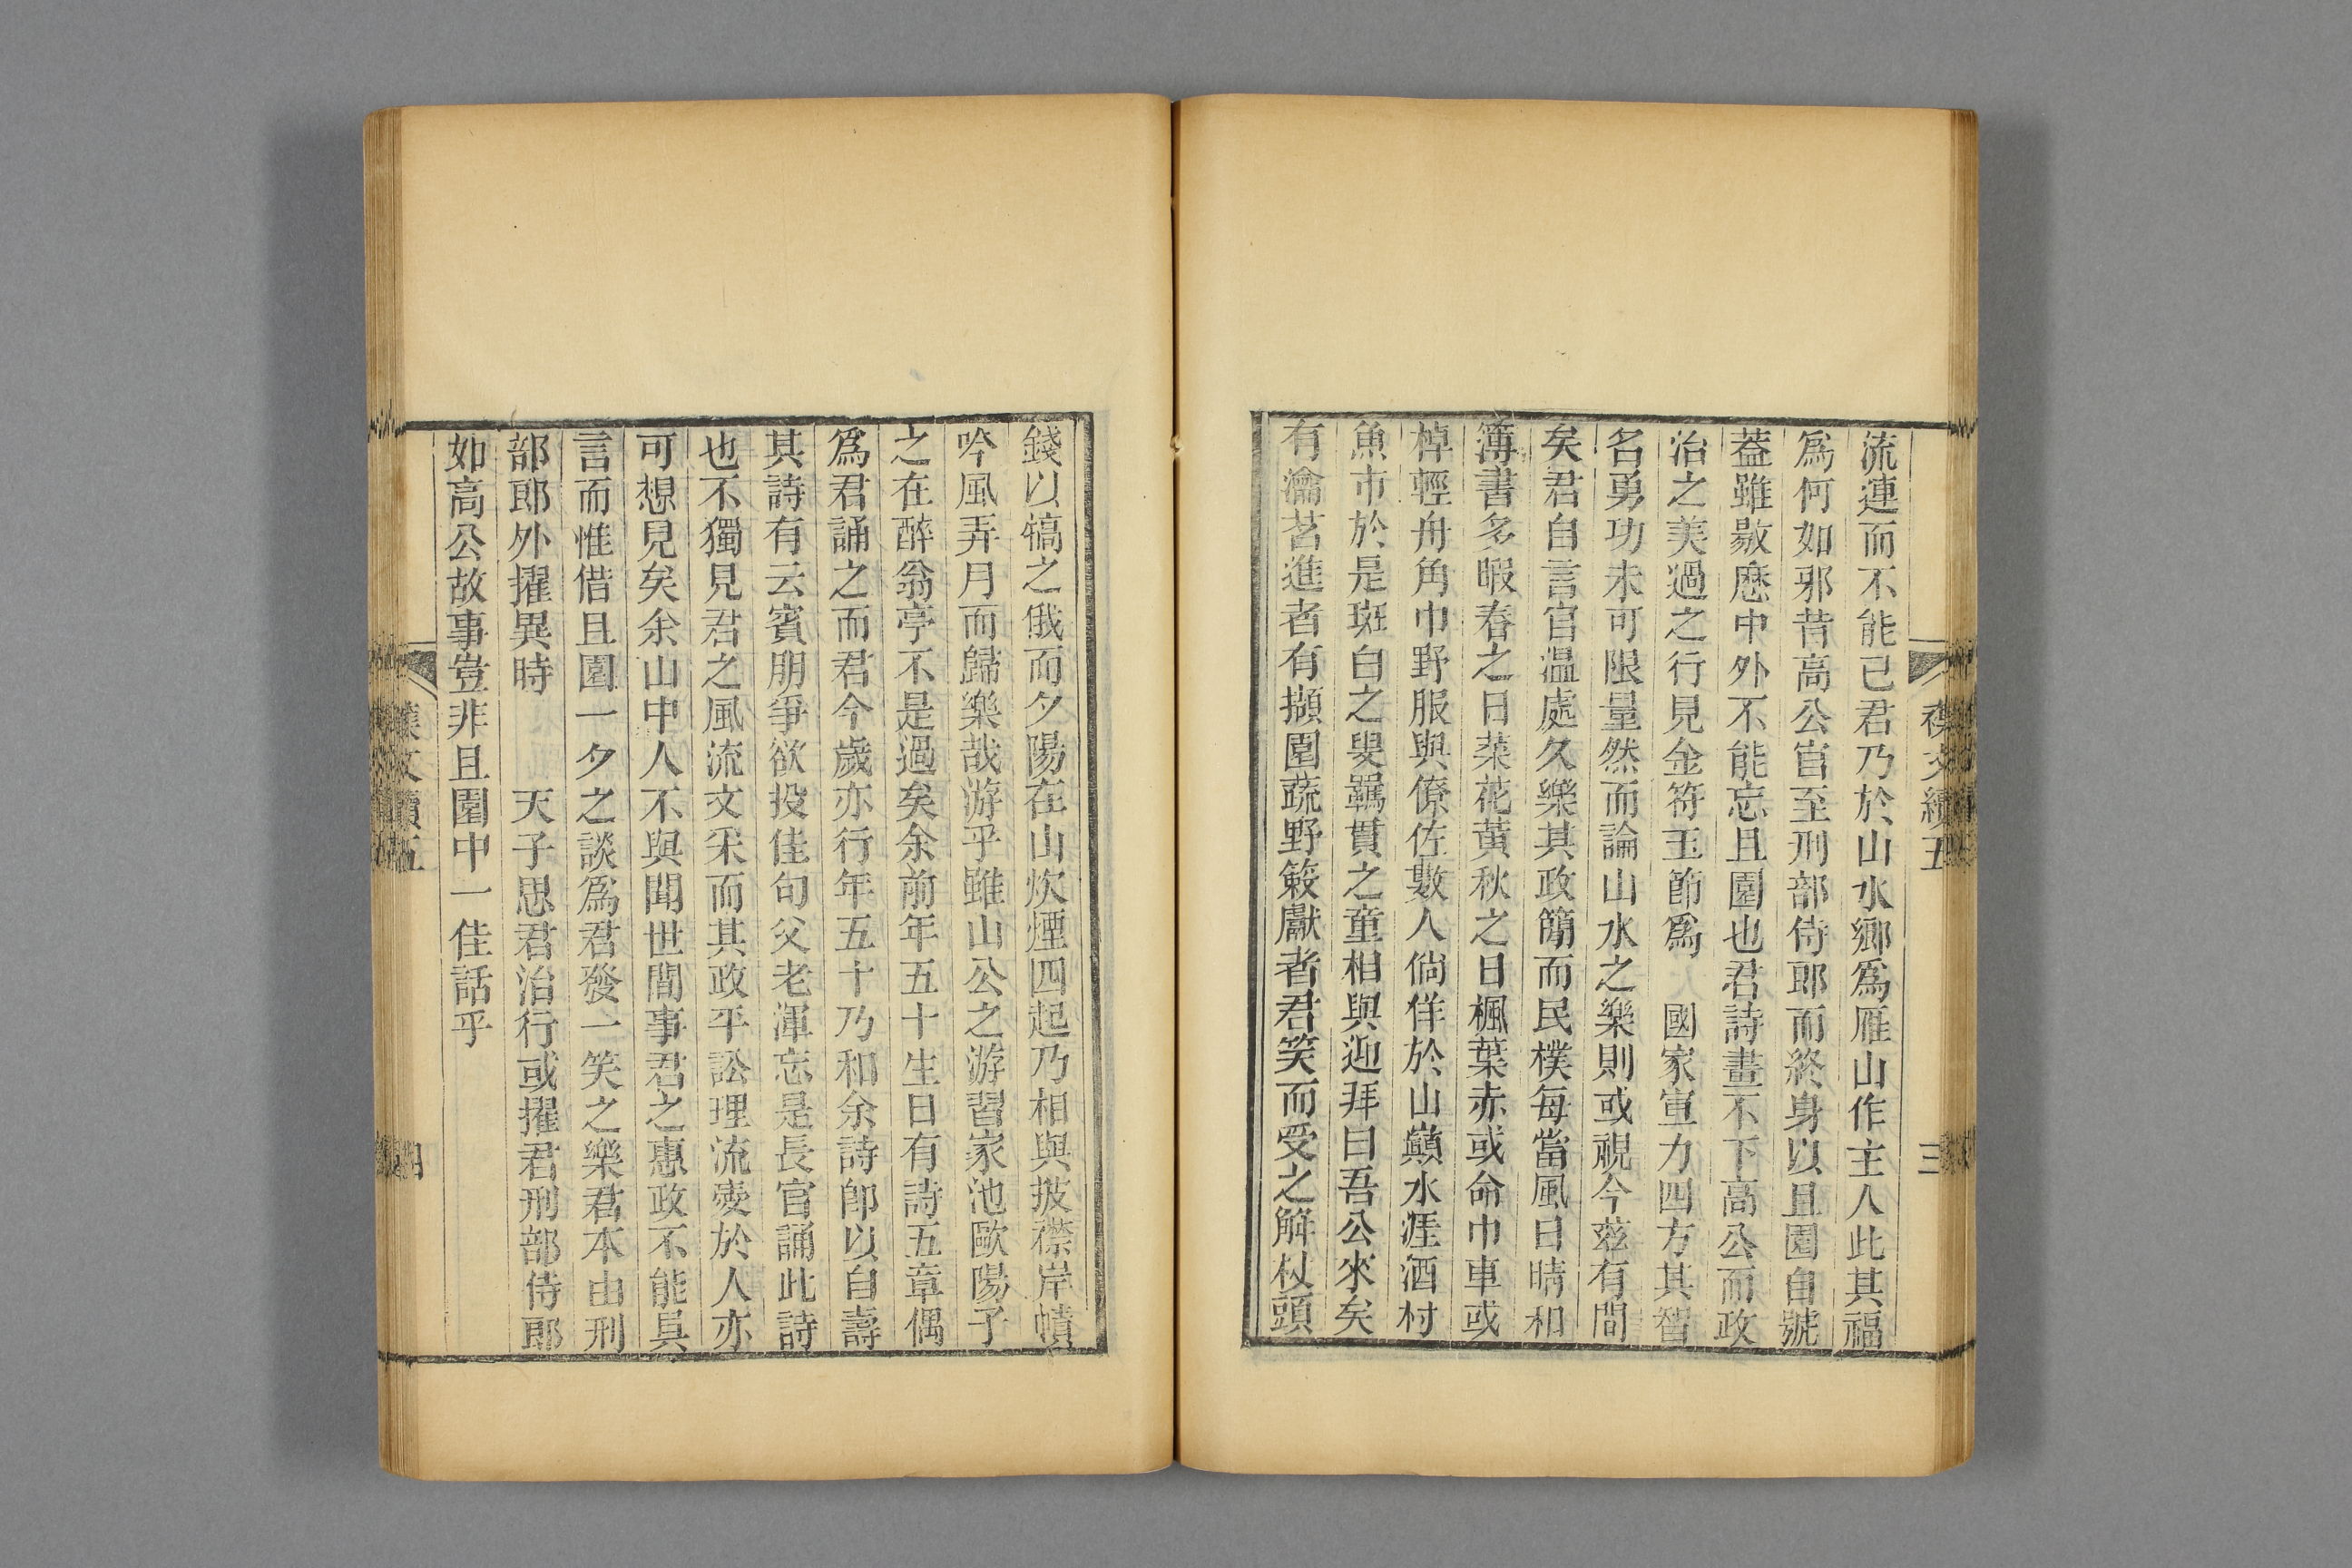 流連而不能已君乃於山水鄉爲雁山作主人此其福
爲何如邪昔高公官至刑部侍郎而終身以且園自號
葢雖敭歷中外不能忘且園也君詩畫不下高公而政
治之美過之行見金符玉節爲 國家宣力四方其智
名勇功未可限量然而論山水之樂則或視今茲有間
矣君自言官温處久樂其政簡而民樸每當風日晴和
簿書多暇春之日菜花黃秋之日楓葉赤或命巾車或
棹輕舟角巾野服與僚佐數人倘佯於山巓水涯酒村
魚市於是斑白之叟羈貫之童相與迎拜曰吾公來矣
有瀹茗進者有擷園蔬野簌獻者君笑而受之解杖頭
襍文續五
三
錢以犒之俄而夕陽在山炊煙四起乃相與披襟岸幘
吟風弄月而歸樂哉游乎雖山公之游習家池歐陽子
之在醉翁亭不是過矣余前年五十生日有詩五章偶
爲君誦之而君今歲亦行年五十乃和余詩卽以自壽
其詩有云賓朋爭欲投佳句父老渾忘是長官誦此詩
也不獨見君之風流文采而其政平訟理流愛於人亦
可想見矣余山中人不與聞世間事君之惠政不能具
言而惟借且園一夕之談爲君發一笑之樂君本由刑
部郎外擢異時 天子思君治行或擢君刑部侍郎
如高公故事豈非且園中一佳話乎
襍文續五
四